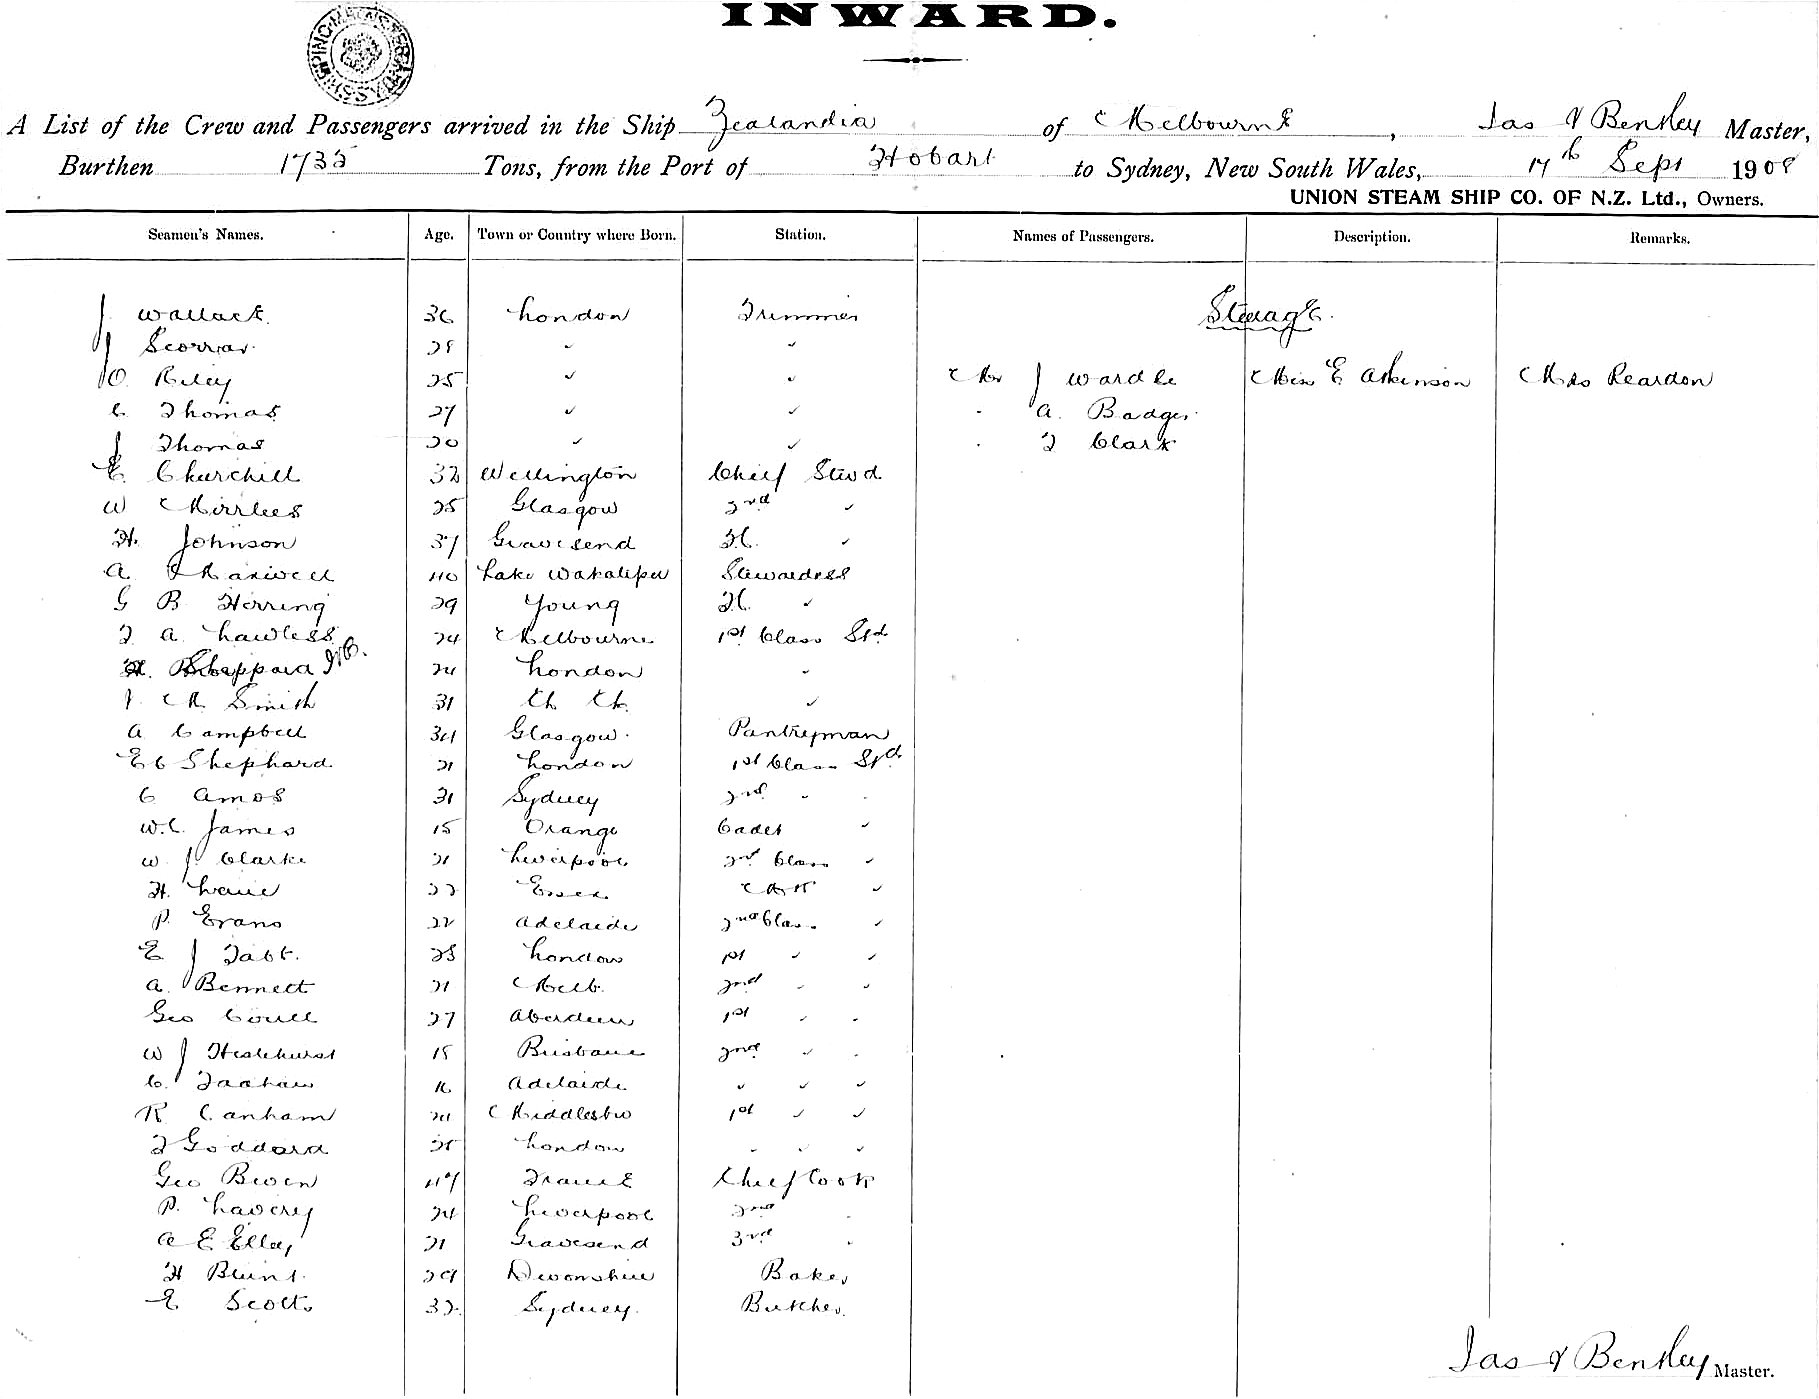 INWARD.
A List of the Crew and Passengers arrived in the Ship Zealandia of Melbourne, Jas Bentley Master,
Burthen 1735 Tons, from the Port of Hobart to Sydney, New South Wales, 17th Sept 1908
UNION STEAM SHIP CO. OF N.Z. Ltd., Owners.
Seamen's Names. Age. Town or Country where Born. Station. Names of Passengers. Description. Remarks.
J Wallace 36 London Trimmer Steerage.
J 28 " "
O. Riley 25 " " Mr J Wardle Miss E Atkinson Mrs Reardon
C Thomas 27 " " " A. Badger
J Thomas 20 " " " Clark
E Churchill 32 Wellington Chief Stwd
W Mirrlees 25 Glasgow 2nd "
H. Johnson 37 Gravesend "
A Maxwell 40 Lake Wakatipu Stewardess
G B Herring 29 Young "
A. Lawless 24 Melbourne 1st Class Std
Sheppard 24 London "
J. M Smith 31 "
A Campbell 34 Glasgow Pantryman
E C Shephard 21 London 1st Class Std
C Amos 31 Sydney 2nd " "
W. C. James 15 Orange Cadet "
W. J. Clarke 21 Liverpool 2nd Class "
H. 22 Essex "
P. Evans 22 Adelaide 2nd Class "
E J 23 London 1st " "
A. Bennett 21 Melb. 2nd " "
Geo Coull 27 Aberdeen 1st " "
W J 18 Brisbane 2nd " "
C. 16 Adelaide " " "
R Canham 24 Middlesbro 1st " "
Goddard 25 London " " "
Geo 47 France Chief Cook
P. Lavery 24 Liverpool 2nd "
A E Elley 21 Gravesend 3rd "
H Blunt 29 Devonshire Baker
E Scott 32 Sydney. Butcher.
Jas Bentley Master.